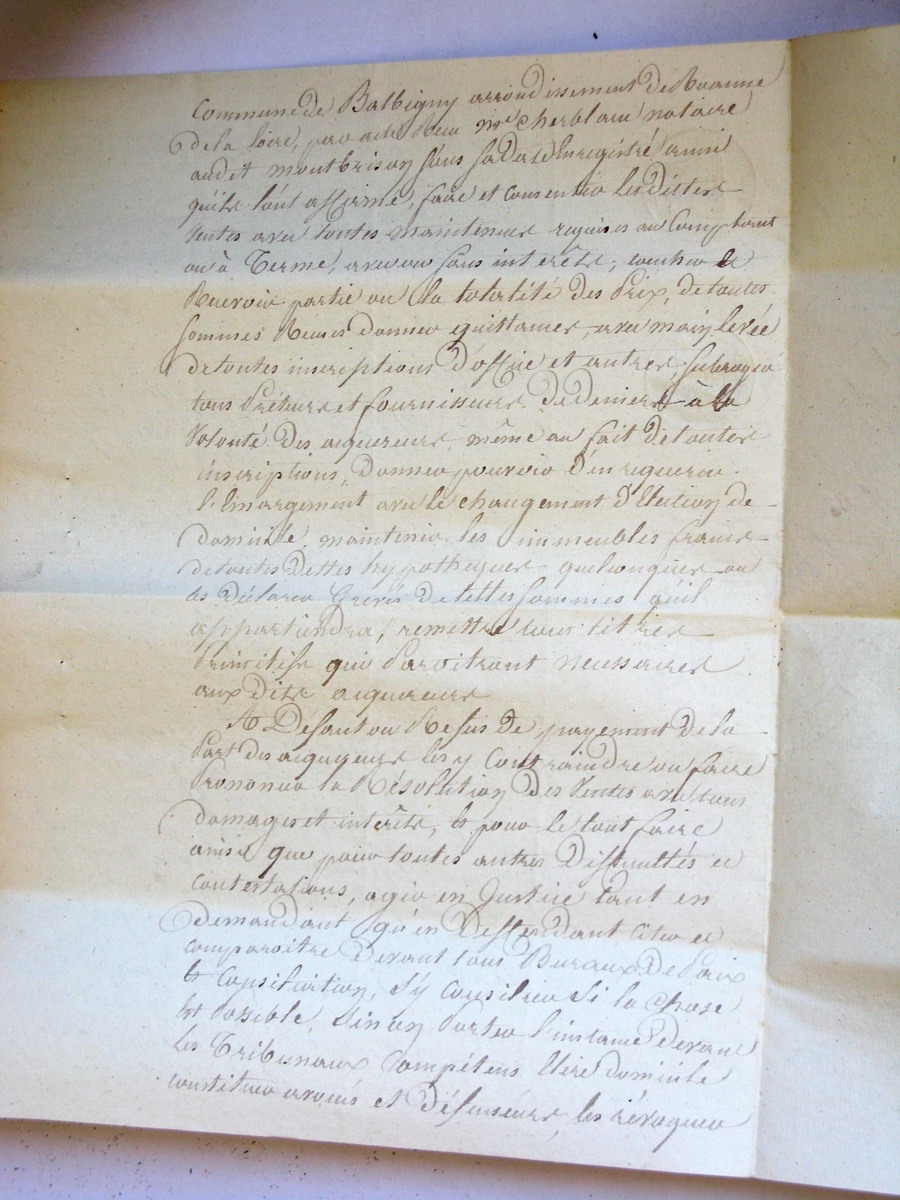 Commune de Balbigny arrondissement de Roanne
de la Loire, par acte Reçu Me Cherblanc notaire
audit montbrison sous sa date Enregistré ainsi
qu'ils l'ont affirmé, faire et consentir les dittes
Ventes avec toutes maintenues requises au Comptant
ou à Terme, avec ou sans intérêts; toucher et
Recevoir partie ou la totalité des Prix, de toutes
sommes Reçues donner quittances, avec main levée
de toutes inscriptions D'office et autres subroger
tous Prêteurs et fournisseurs De deniers à la
Volonté Des acquereurs même au fait de toutes
inscriptions, Donner pouvoir D'en requerir
l'Emargement avec le changement D'Election de
Domicile maintenir les immeubles francs
de toutes Dettes hypothèques quelconques ou
les Déclarer Grevés de telles sommes qu'il
appartiendra, remettre tous titres
Primitifs qui Paroitront necessaires
aux dits acquereurs
A Défaut ou Refus De payement De la
Part des acquereurs les y Contraindre ou faire
Prononcer la Résolution Des Ventes avec tous
domages et intérêts, Et pour le tout faire
ainsi que pour toutes autres Difficultés et
Contestations, agir en Justice tant en
Demandant qu'en Deffendant Citer et
comparoitre Devant tous Bureaux De Paix
Et Conciliation, s'y Concilier si la chose
Est Possible, Sinon Porter l'instance Devant
les Tribunaux Compétens Elire domicile
constituer avoués et Défenseurs, les révoquer